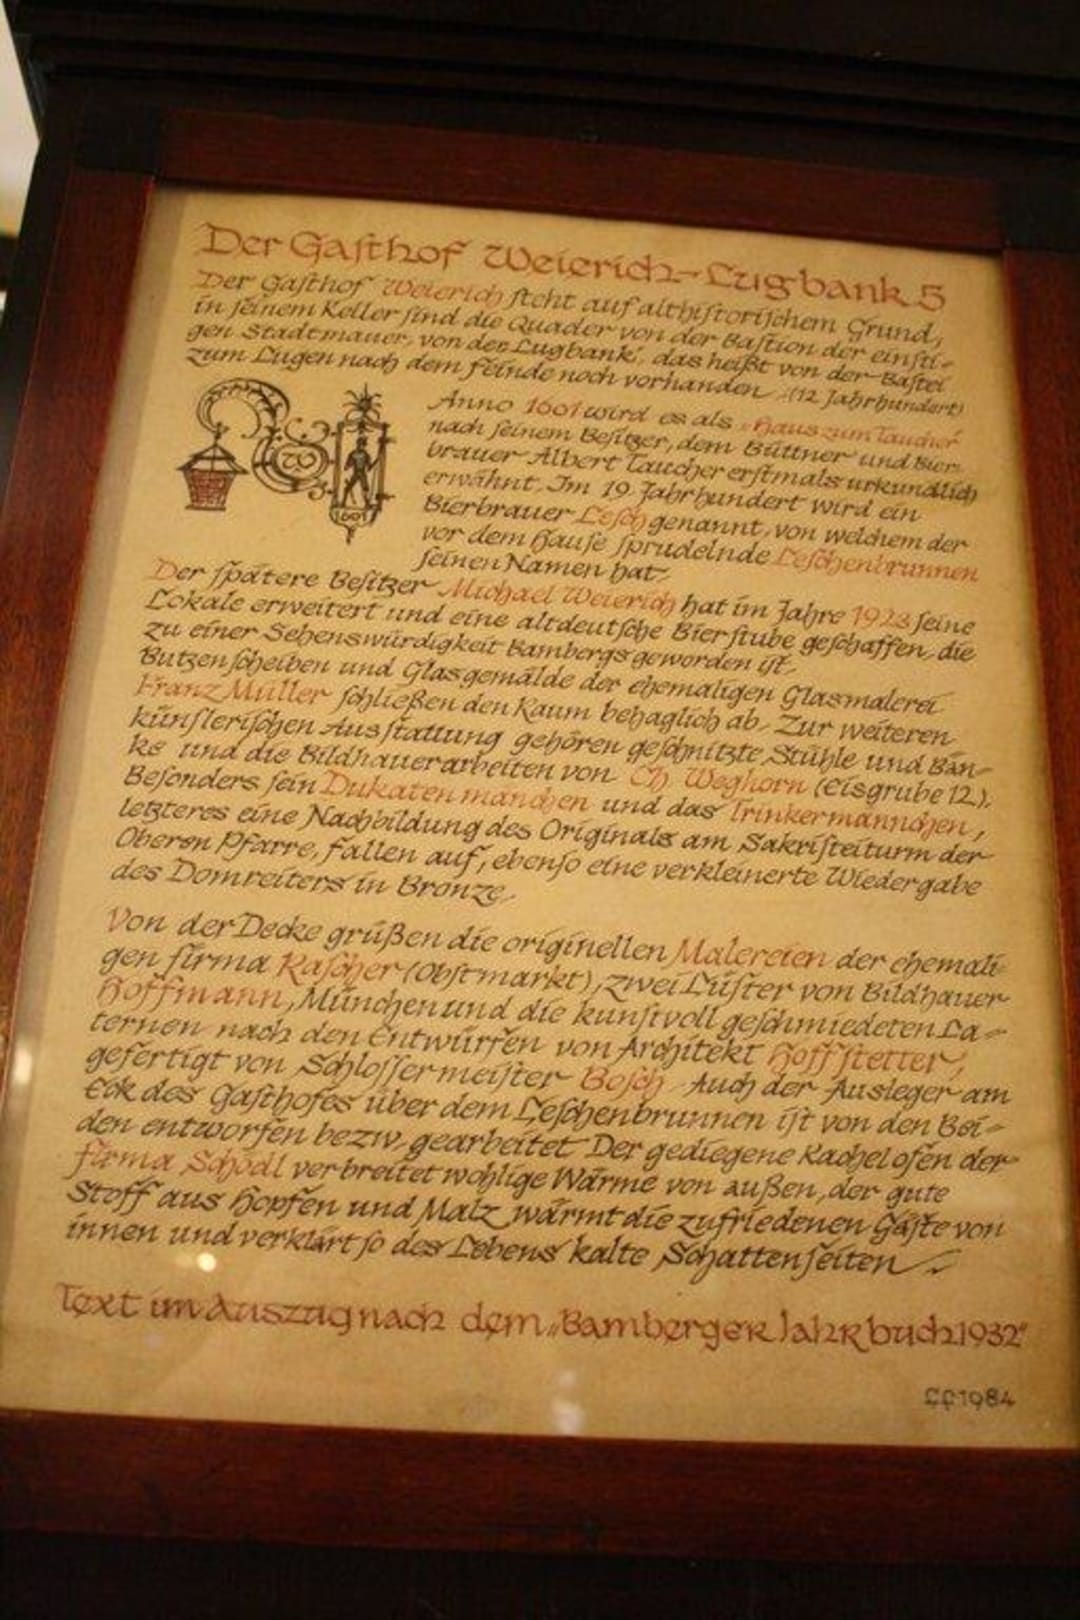 Der Gasthof Weierich-Lugbank 5
Der Gasthof Weierich steht auf althistorischem Grund,
in seinem Keller sind die Quader von der Bastion der einsti-
gen Stadtmauer, von der „Lugbank“, das heißt von der Bastei
zum Lugen nach dem Feinde noch vorhanden. (12. Jahrhundert)
Anno 1601 wird es als „Haus zum Taucher“
nach seinem Besitzer, dem Büttner und Bier-
brauer Albert Taucher erstmals urkundlich
erwähnt. Im 19. Jahrhundert wird ein
Bierbrauer Lesch genannt, von welchem der
vor dem Hause sprudelnde Leschenbrunnen
seinen Namen hat.
1601
Der spätere Besitzer Michael Weierich hat im Jahre 1923 seine
Lokale erweitert und eine altdeutsche Bierstube geschaffen, die
zu einer Sehenswürdigkeit Bambergs geworden ist.
Butzenscheiben und Glasgemälde der ehemaligen Glasmalerei
Franz Müller schließen den Raum behaglich ab. Zur weiteren
künslerischen Ausstattung gehören geschnitzte Stühle und Bän-
ke und die Bildhauerarbeiten von Ch. Weghorn (Eisgrube 12.).
Besonders sein Dukatenmänchen und das Trinkermännchen,
letzteres eine Nachbildung des Originals am Sakristeiturm der
Oberen Pfarre, fallen auf, ebenso eine verkleinerte Wiedergabe
des Domreiters in Bronze.
Von der Decke grüßen die originellen Malereien der ehemali-
gen Firma Rascher (Obstmarkt), zwei Lüster von Bildhauer
Hoffmann, München und die kunstvoll geschmiedeten La-
ternen nach den Entwürfen von Architekt Hoffstetter,
gefertigt von Schlossermeister Bosch. Auch der Ausleger am
Eck des Gasthofes über dem Leschenbrunnen ist von den Bei-
den entworfen bezw. gearbeitet. Der gediegene Kachelofen der
Firma Schödl verbreitet wohlige Wärme von außen, der gute
Stoff aus Hopfen und Malz wärmt die zufriedenen Gäste von
innen und verklärt so des Lebens kalte Schattenseiten.
Text im Auszug nach dem „Bamberger Jahrbuch 1932“
1984